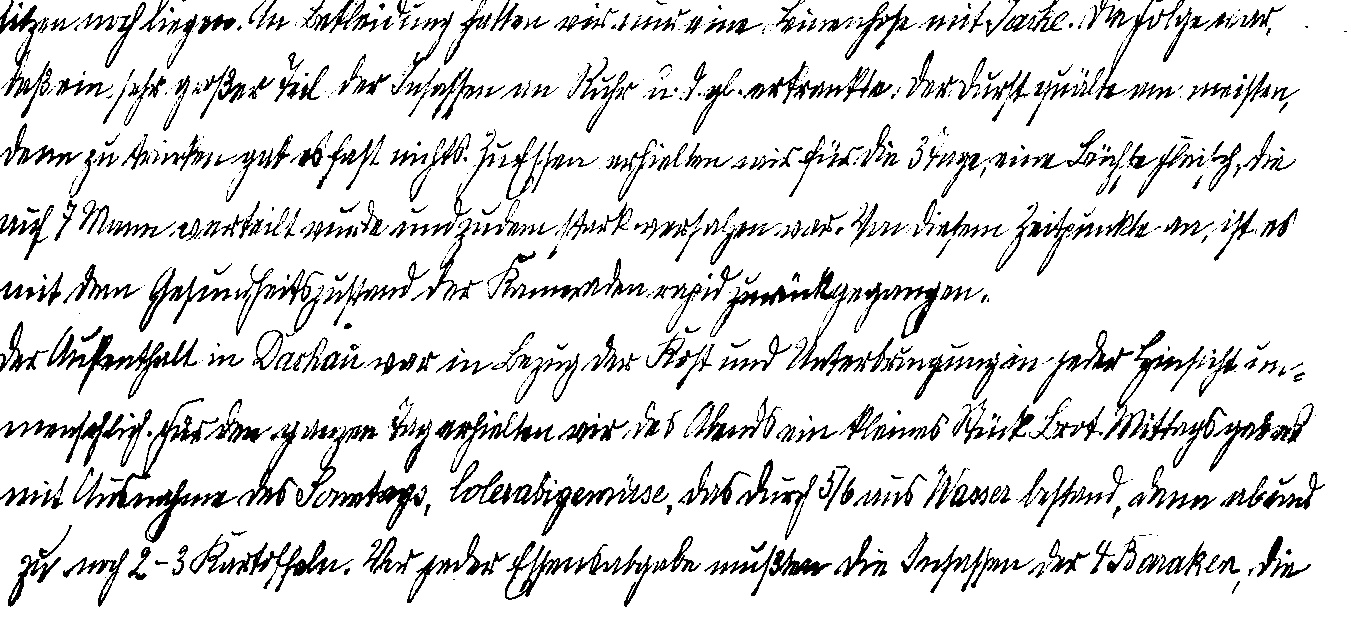 sitzen noch liegen. In Bekleidung hatten wir nur eine Leinenhose mit Jacke. Die Folge war,
daß ein sehr großer Teil der Insassen an Ruhr u. d. gl. erkrankte. Der Durst quälte am meisten,
denn zu trinken gab es fast nichts. Zu Essen erhielten wir für die 3 Tage, eine Büchse Fleisch, die
auf 7 Mann verteilt wurde und zudem stark versalzen war. Von diesem Zeitpunkte an, ist es
mit dem Gesundheitszustand der Kameraden rapid zurückgegangen.
Der Aufenthalt in Dachau war in Bezug der Kost und Unterbringung in jeder Hinsicht un-
menschlich. Für den ganzen Tag erhielten wir des Abends ein kleines Stück Brot. Mittags gab es
mit Ausnahme des Sonntags, Colerabigemüse, das durch 5/6 aus Wasser bestand, dann ab und
zu noch 2-3 Kartoffeln. Vor jeder Essensabgabe mußten die Insassen der 4 Baraken, die